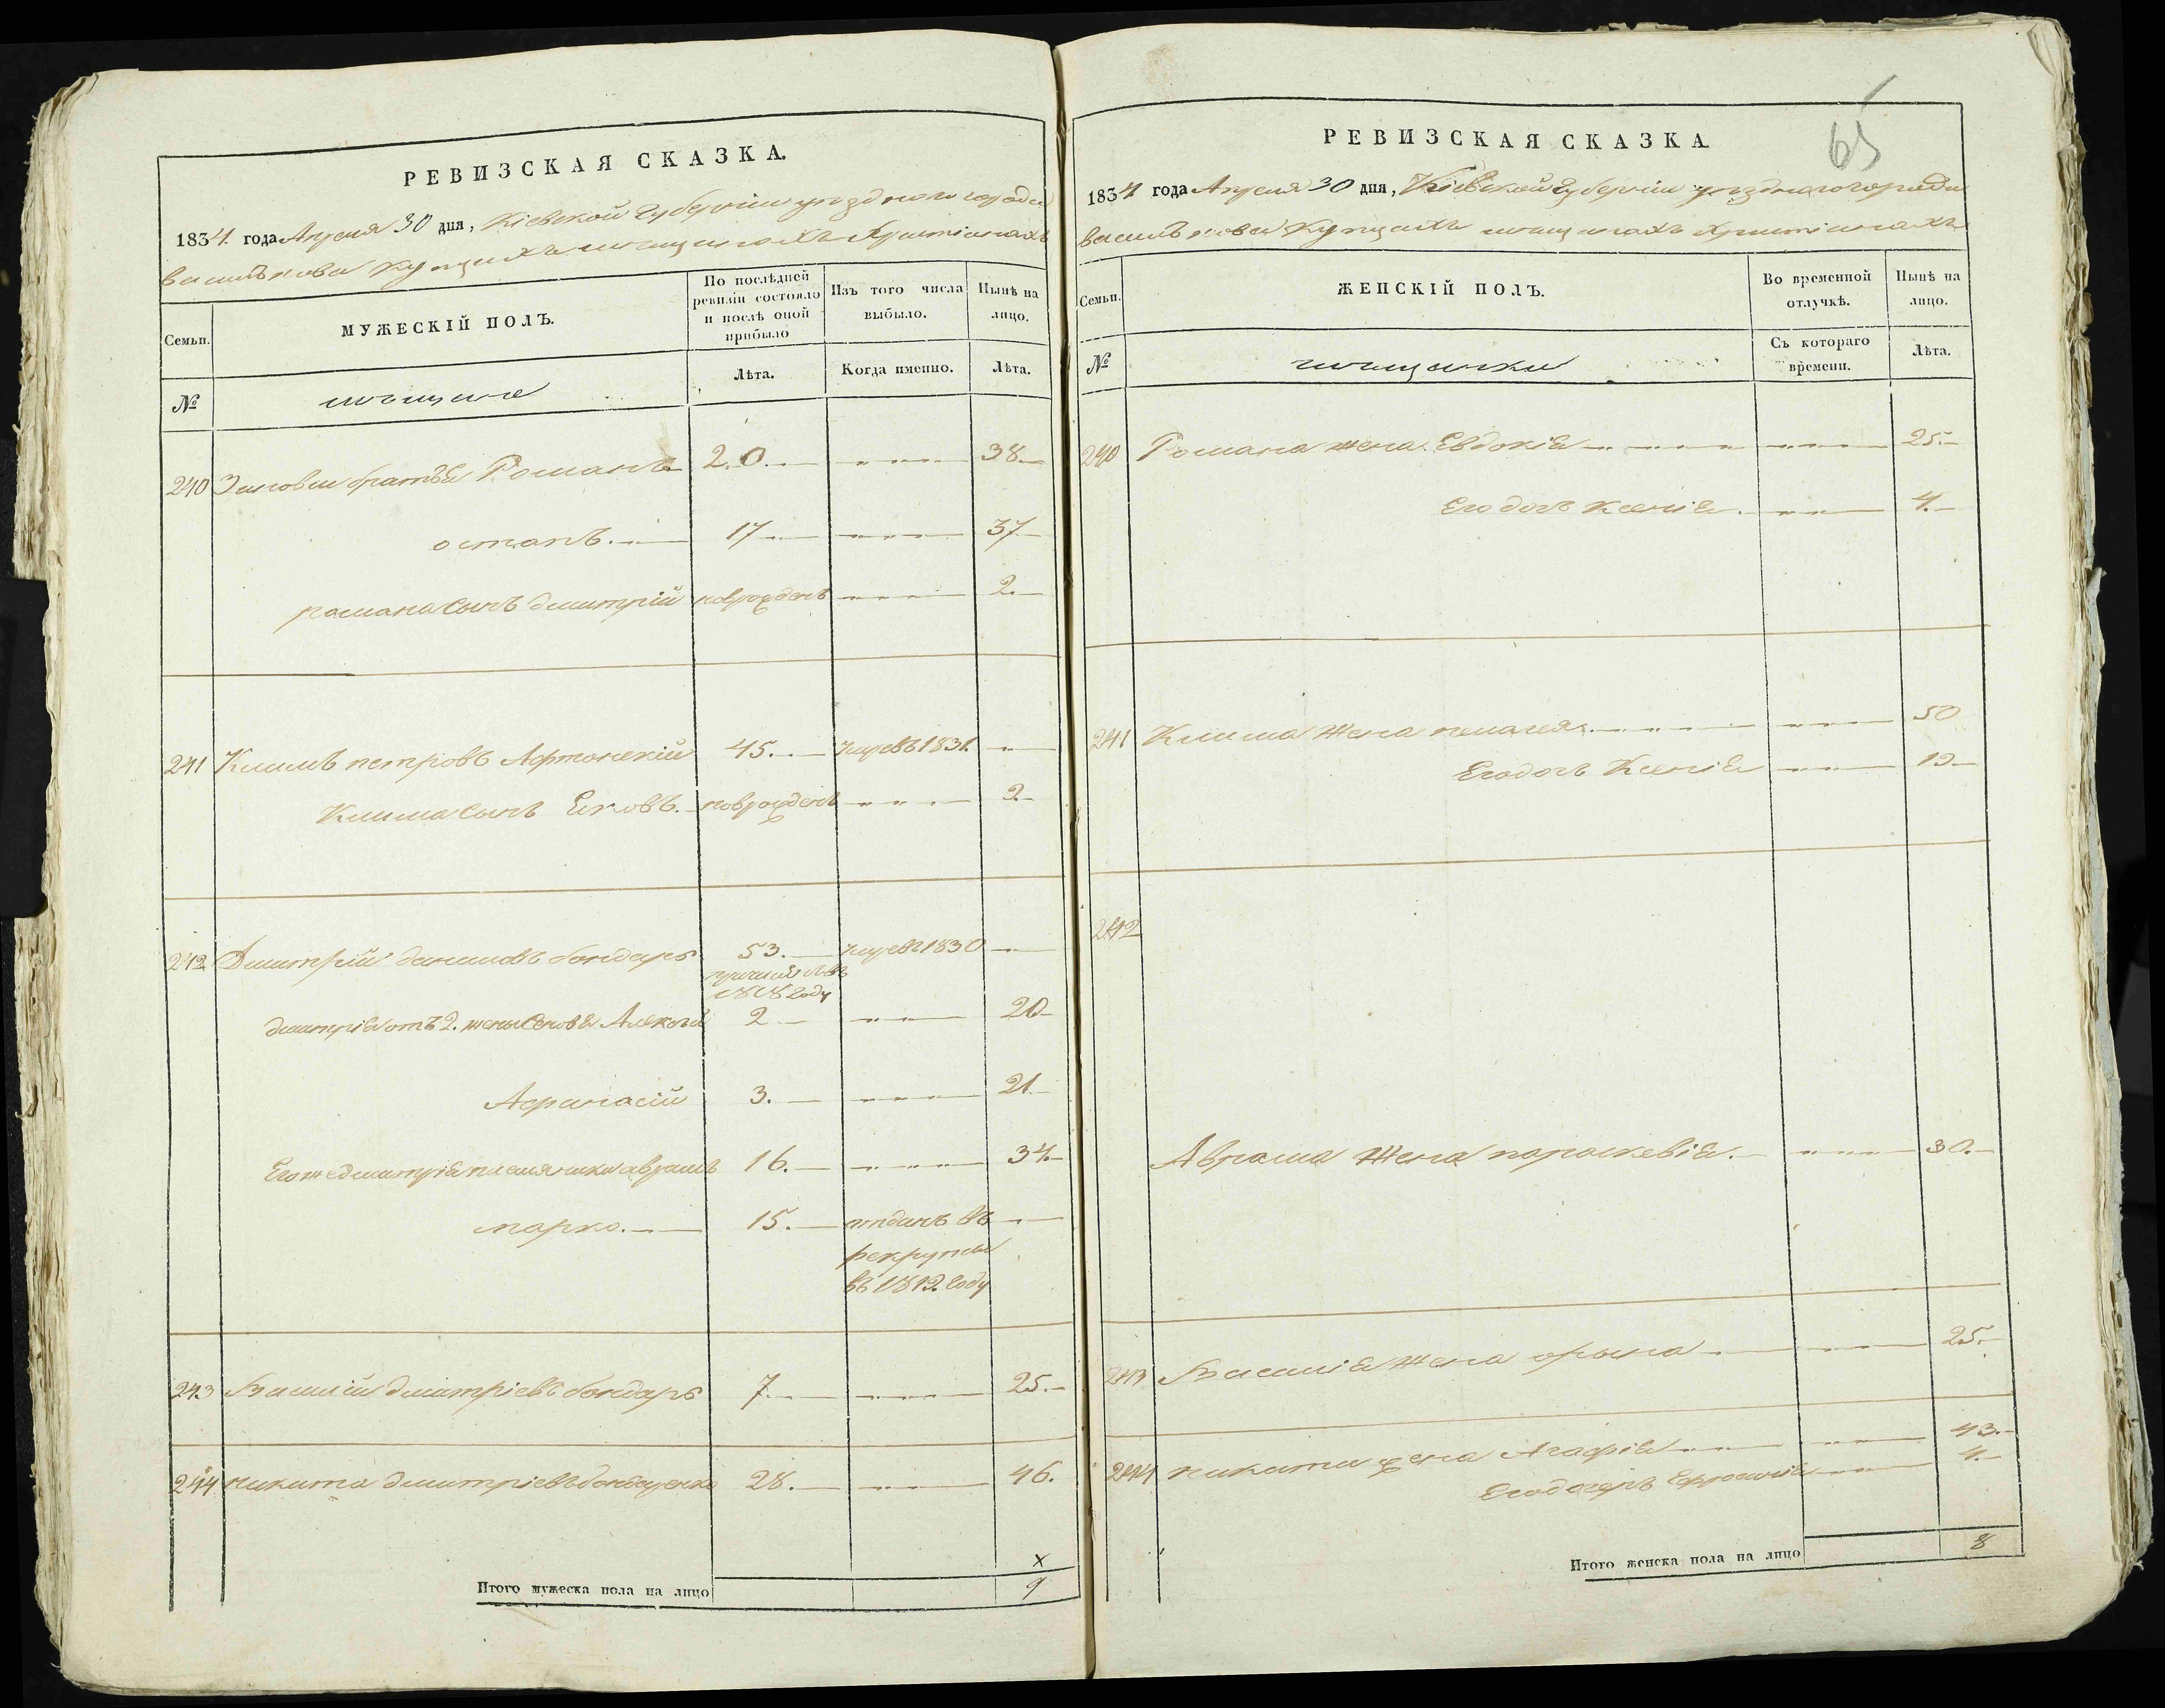 РЕВИЗСКАЯ СКАЗКА.
1834. года Апреля 30 дня, Кіевской Губерніи уезднаго города
василькова купцахъ мещанахъ Христіянахъ
Семьи.
МУЖЕСКІЙ ПОЛЪ.
По послѣдней ревизіи состояло и послѣ оной прибыло
Изъ того числа выбыло.
Нынѣ на лицо.
№
мещане
Лѣта.
Когда именно.
Лѣта.
240 братья Романъ 20. 38
остапъ. 17 37
романа сынъ дмитрій новрожденъ 2.
241 Климъ петровъ 45. умре въ 1831.
Клима сынъ Яковъ. новрожденъ 2.
242 Дмитрій даниловъ бондарь 53. умре въ 1830
1818 году
дмитрія отъ 2. жены сыновья Алексей 2 20
Афанасій 3. 21
Его же дмитрія племянники аврамъ 16. 34
марко. 15. отданъ въ
рекруты
въ 1812 году
243 Василій дмитріевъ бондарь 7. 25.
244 никита дмитріевъ бондаренко 28. 46.
x
Итого мужеска пола на лицо 9
65
РЕВИЗСКАЯ СКАЗКА
1834 года Апреля 30 дня, Кіевской Губерніи уезднаго города
василькова Купцахъ мещанахъ Христіянахъ
Семьи.
ЖЕНСКІЙ ПОЛЪ.
Во временной отлучкѣ.
Нынѣ на лицо.
№
мещанки
Съ котораго времени.
Лѣта.
240 Романа жена Евдокія 25.
Его дочь Ксенія. 4.
241 Клима жена пелагея. 50
Его дочь Ксенія
242
Аврама Жена параскевія. 30.
243 Василія Жена орына 25.
244 никиты жена Агафія 43.
Его дочерь Ефросинія 4.
Итого женска пола на лицо 8